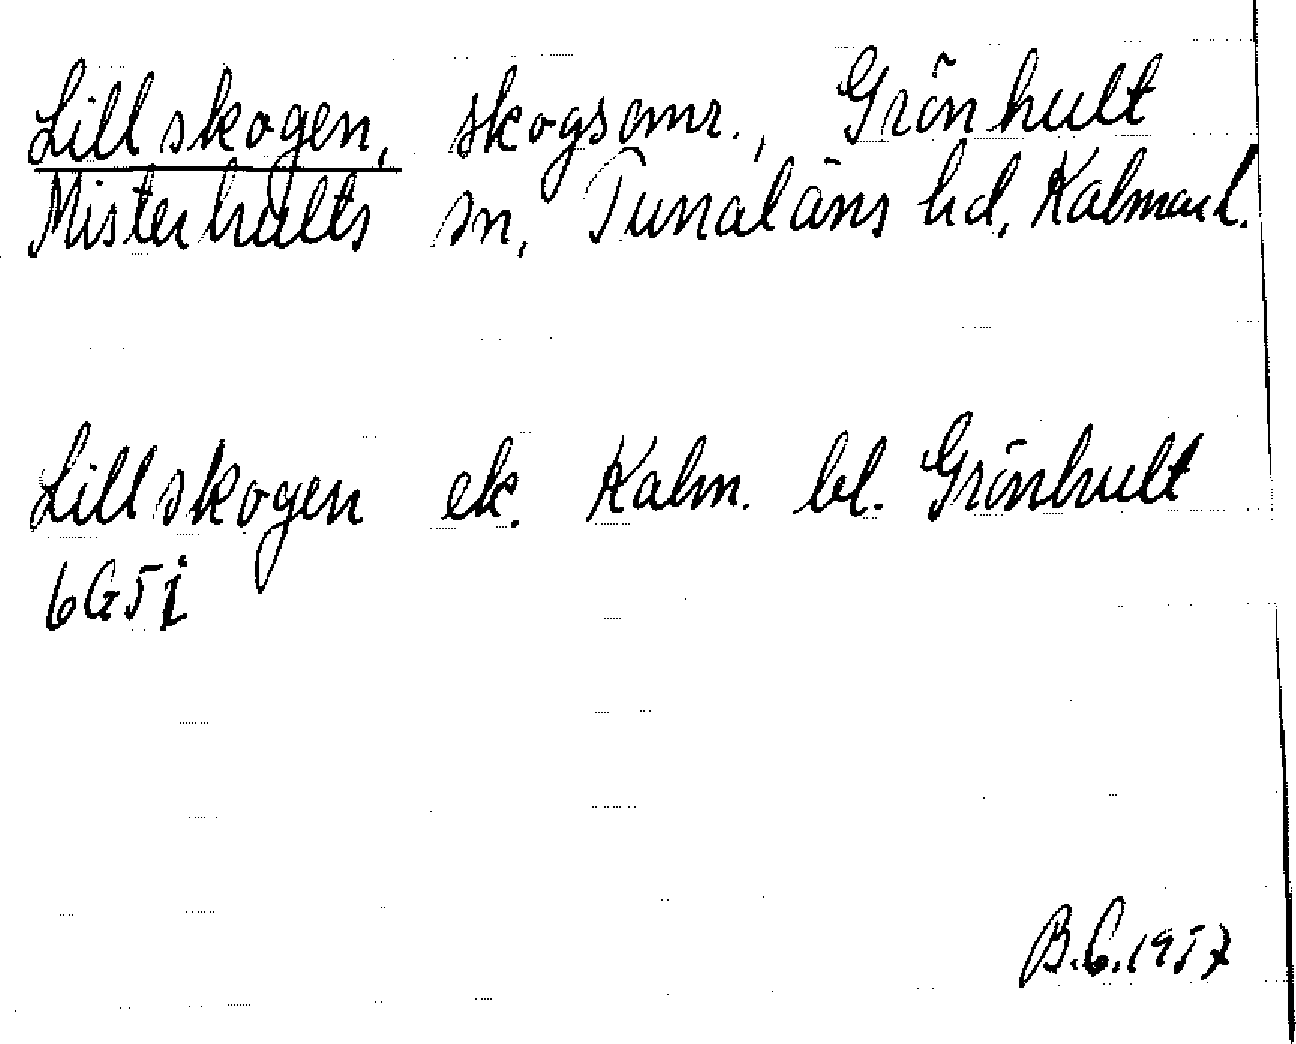 Lillskogen, skogsomr., Grönhult
Misterhults sn, Tunaläns hd, Kalmar l.
Lillskogen ek. Kalm. bl. Grönhult
6G5i
B.C. 1957